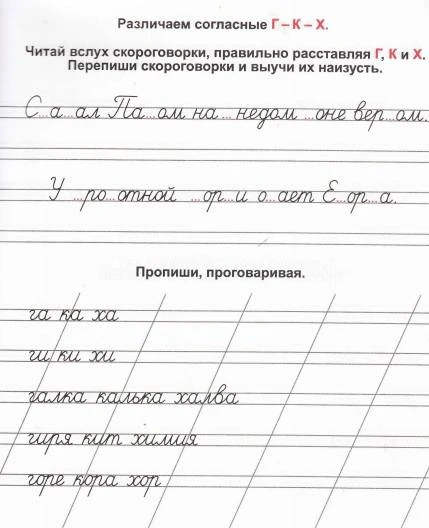 Различаем согласные Г – К – Х.
Читай вслух скороговорки, правильно расставляя Г, К и Х.
Перепиши скороговорки и выучи их наизусть.
С...а...ал Па...ом на ...недом ...оне вер...ом.
У ...ро...отной ...ор...и о...ает Е...ор...а.
Пропиши, проговаривая.
га ка ха
ги ки хи
галка калька халва
гиря кит химия
горе кора хор